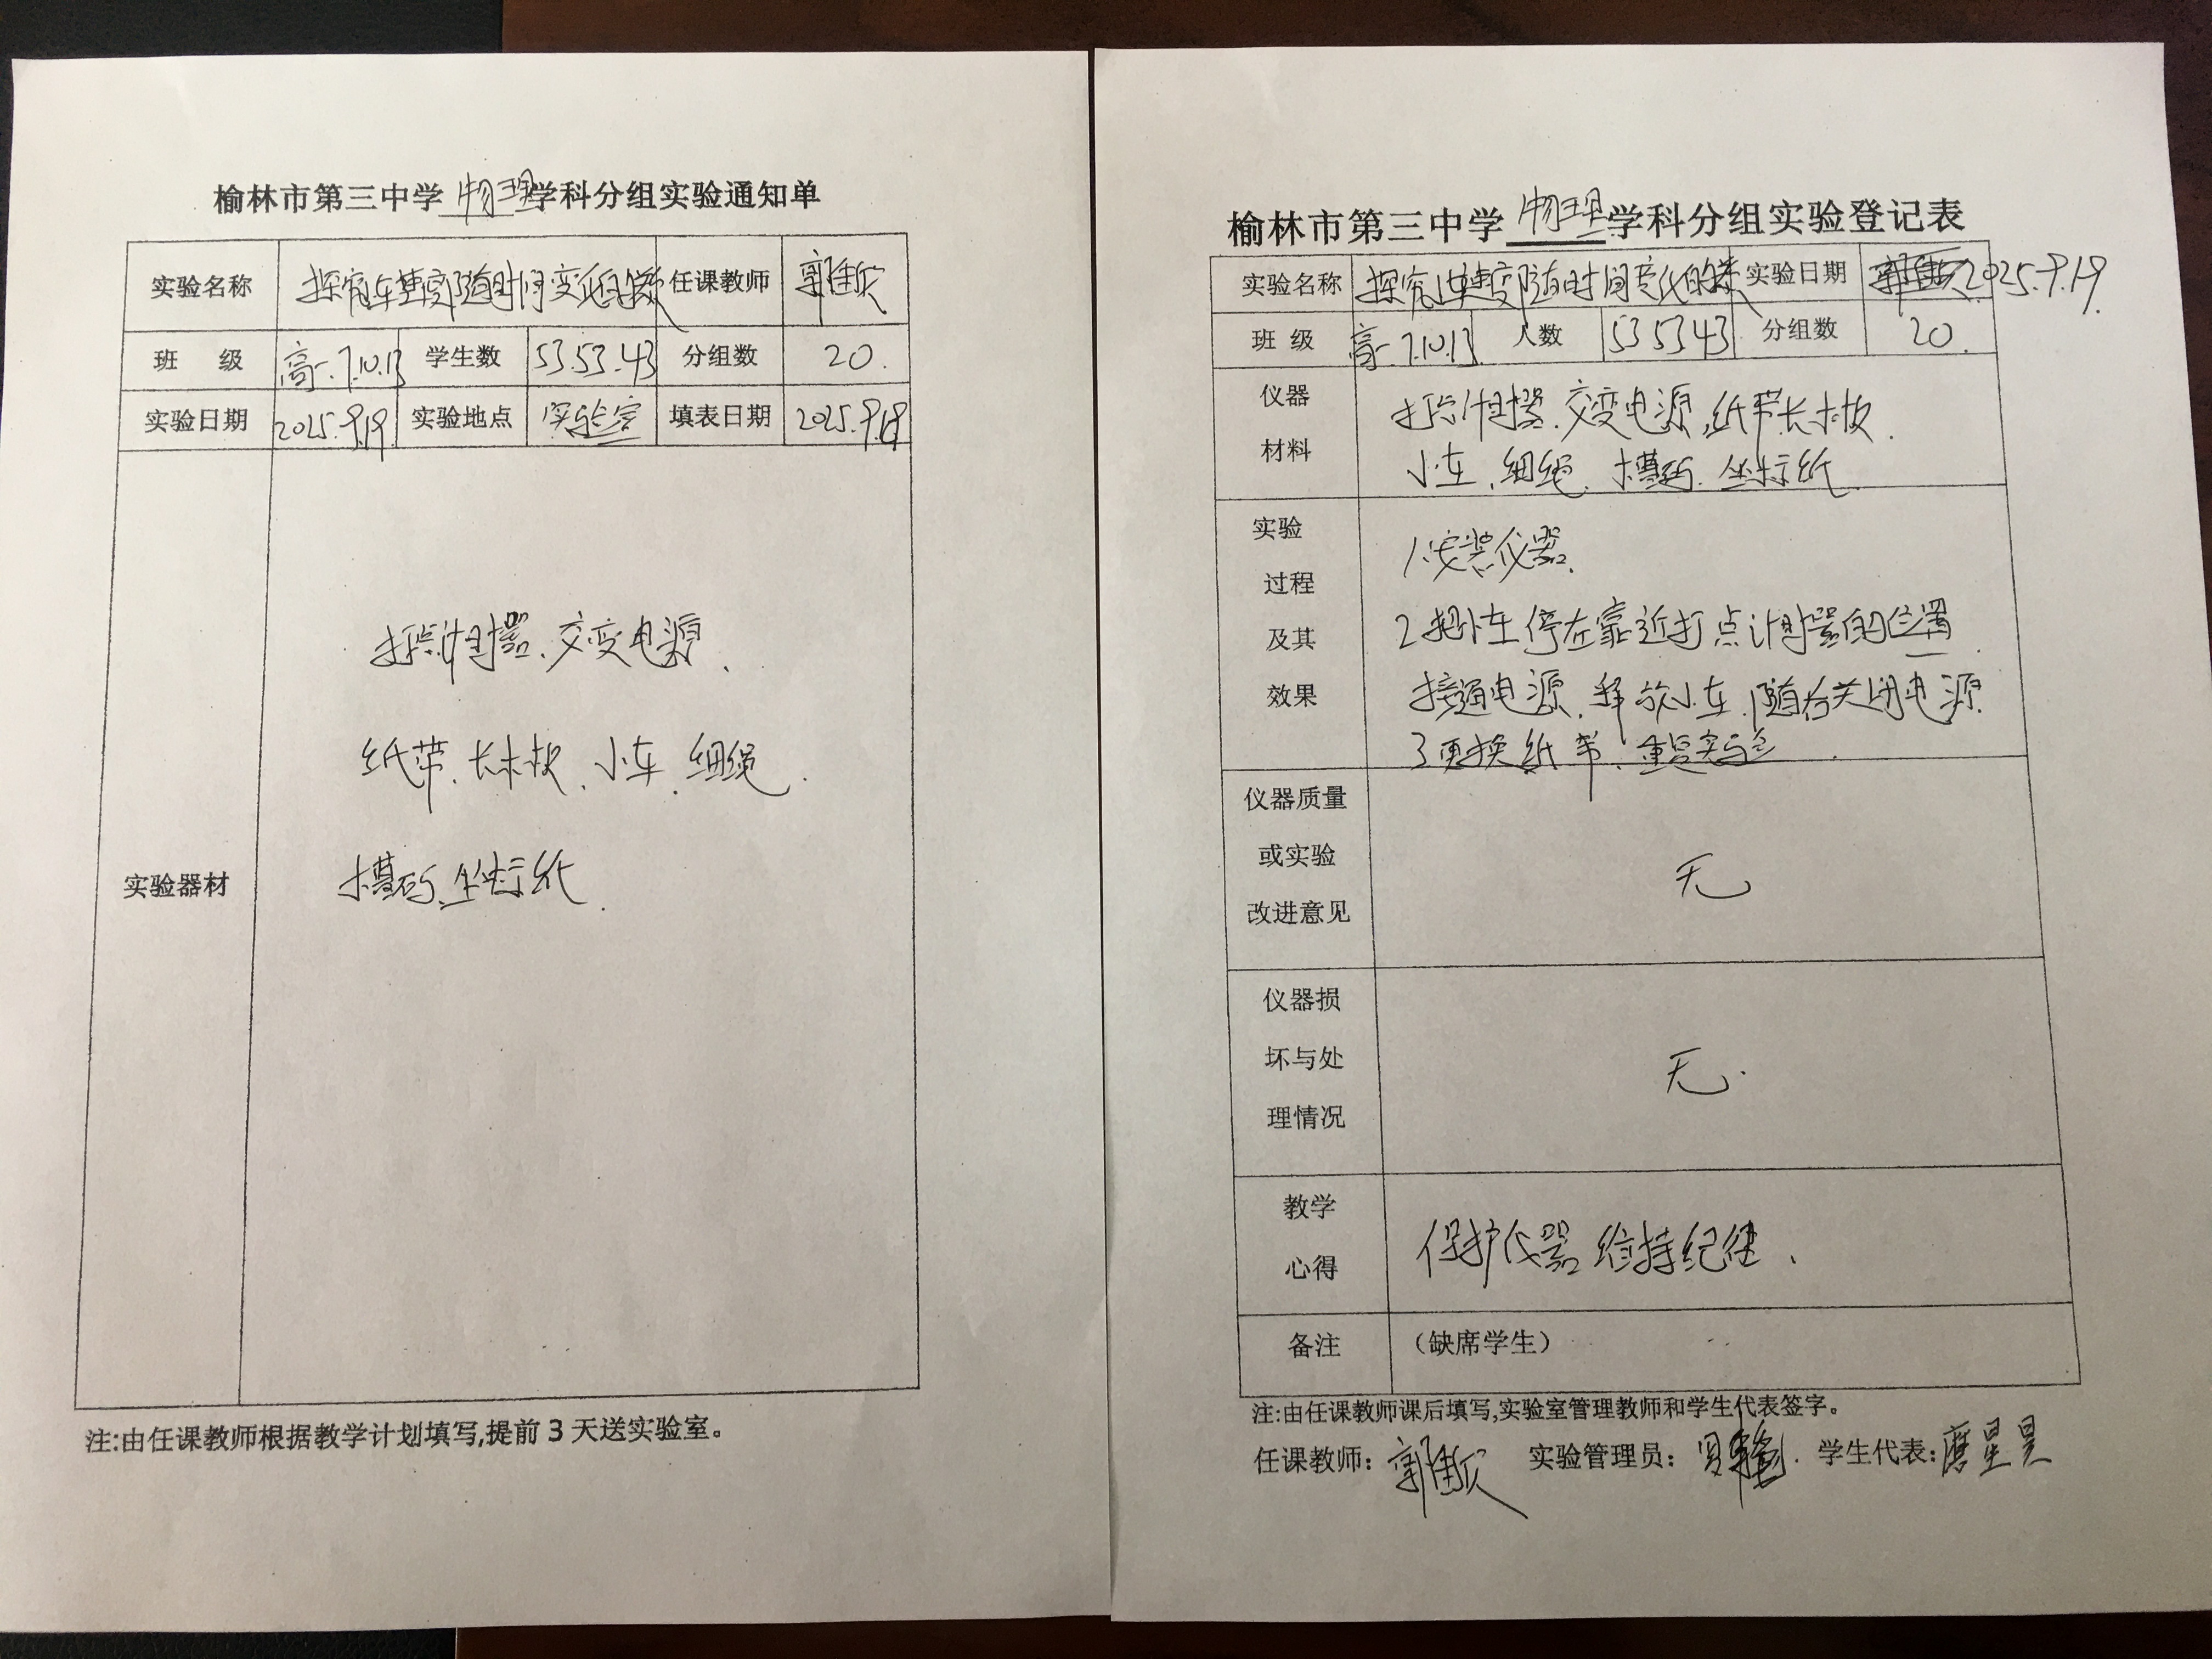 榆林市第三中学 物理 学科分组实验通知单
实验名称 探究小车速度随时间变化的 任课教师 郭佳欣
班 级 高一.7.10.13 学生数 53.53.43 分组数 20.
实验日期 2025.9.19. 实验地点 实验室 填表日期 2025.9.19
实验器材
打点计时器、交变电源、
纸带、长木板、小车、细绳、
槽码、坐标纸.
注:由任课教师根据教学计划填写,提前3天送实验室。
榆林市第三中学 物理 学科分组实验登记表
实验名称 探究小车速度随时间变化的 实验日期 2025.9.19.
班 级 高一 7.10.13 人数 53 53 43 分组数 20.
仪器
材料
打点计时器、交变电源、纸带、长木板、
小车、细绳、槽码、坐标纸
实验
过程
及其
效果
1.安装仪器.
2 把小车停在靠近打点计时器的位置.
接通电源、释放小车、随后关闭电源
3 更换纸带、重复实验.
仪器质量
或实验
改进意见
无
仪器损
坏与处
理情况
无.
教学
心得
保护仪器 维持纪律、
备注 （缺席学生）
注:由任课教师课后填写,实验室管理教师和学生代表签字。
任课教师: 郭佳欣 实验管理员: 学生代表: 星昊